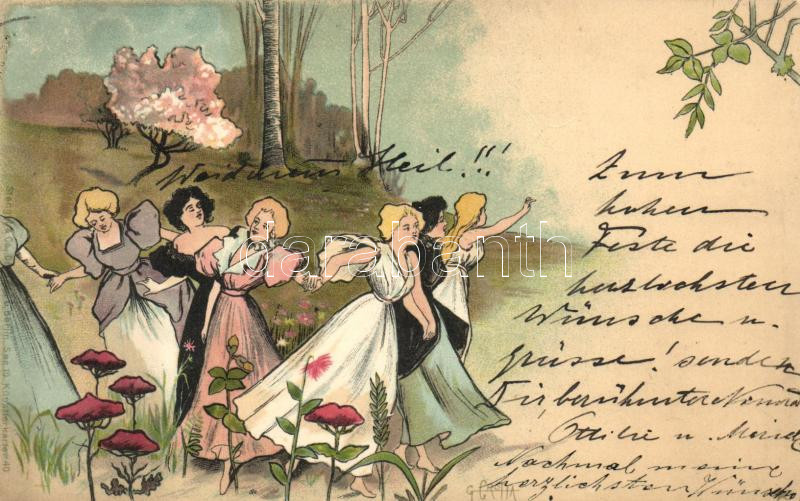 Weidmanns Heil!!!
Zum
hohen
Feste die
herzlichsten
Wünsche u.
grüsse! senden
Dir, berühmter
Ottilie u.
Nochmal meine
herzlichsten Wünsche
darabanth